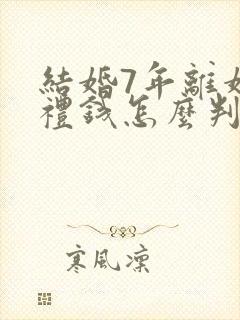 結婚7年離婚
禮錢怎麼判
寒風凜